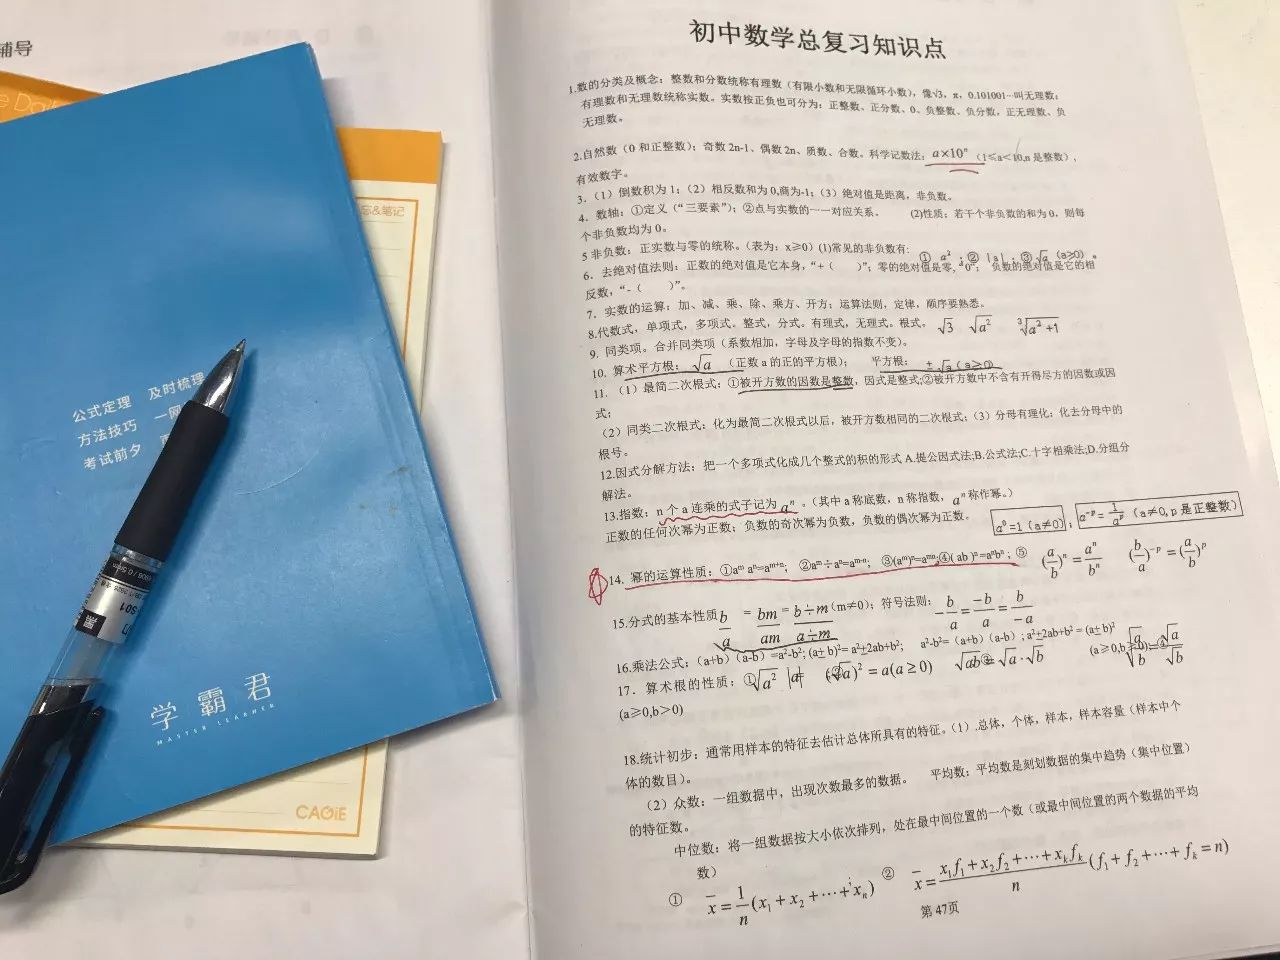 辅导
忘&笔记
公式定理 及时梳理
方法技巧
考试前夕
学霸君
MASTER LEARNER
CAGiE
初中数学总复习知识点
1.数的分类及概念：整数和分数统称有理数（有限小数和无限循环小数），像√3，π，0.101001…叫无理数；
有理数和无理数统称实数。实数按正负也可分为：正整数、正分数、0、负整数、负分数，正无理数、负
无理数。
2.自然数（0 和正整数）；奇数 2n-1、偶数 2n、质数、合数。科学记数法：a×10ⁿ（1≤a＜10,n 是整数），
有效数字。
3.（1）倒数积为 1；（2）相反数和为 0,商为-1；（3）绝对值是距离，非负数。
4．数轴：①定义（“三要素”）；②点与实数的一一对应关系。 (2)性质：若干个非负数的和为 0，则每
个非负数均为 0。
5 非负数：正实数与零的统称。（表为：x≥0）(1)常见的非负数有: ① a² ；② |a| ；③ √a (a≥0) 。
6．去绝对值法则：正数的绝对值是它本身，“+（ ）”；零的绝对值是零，“0”； 负数的绝对值是它的相
反数，“-（ ）”。
7．实数的运算：加、减、乘、除、乘方、开方；运算法则，定律，顺序要熟悉。
8.代数式，单项式，多项式。整式，分式。有理式，无理式。根式。 √3 √a² ³√(a²+1)
9. 同类项。合并同类项（系数相加，字母及字母的指数不变）。
10. 算术平方根： √a （正数 a 的正的平方根）； 平方根： ±√a (a≥0)
11. （1）最简二次根式：①被开方数的因数是整数，因式是整式;②被开方数中不含有开得尽方的因数或因
式；
（2）同类二次根式：化为最简二次根式以后，被开方数相同的二次根式；（3）分母有理化：化去分母中的
根号。
12.因式分解方法：把一个多项式化成几个整式的积的形式 A.提公因式法;B.公式法;C.十字相乘法;D.分组分
解法。
13.指数：n 个 a 连乘的式子记为 aⁿ 。（其中 a 称底数，n 称指数， aⁿ 称作幂。）
正数的任何次幂为正数；负数的奇次幂为负数，负数的偶次幂为正数。 a⁰=1 (a≠0) ； a⁻ᵖ=1/aᵖ (a≠0, p 是正整数)
14. 幂的运算性质：①aᵐ aⁿ=aᵐ⁺ⁿ； ②aᵐ÷aⁿ=aᵐ⁻ⁿ； ③(aᵐ)ⁿ=aᵐⁿ;④( ab )ⁿ=aⁿbⁿ ；⑤ (a/b)ⁿ=aⁿ/bⁿ (b/a)⁻ᵖ=(a/b)ᵖ
15.分式的基本性质 b/a = bm/am = (b÷m)/(a÷m) (m≠0)；符号法则： -b/a = -b/a = b/-a
16.乘法公式：（a+b）（a-b）=a²-b²；(a±b)²= a²±2ab+b²； a²-b²=（a+b）（a-b）; a²±2ab+b² = (a±b)²
17．算术根的性质：①√a² |a|= ②(√a)² = a(a≥0) √ab ③=√a·√b (a≥0,b≥0) ④√(a/b)=√a/√b
(a≥0,b＞0)
18.统计初步：通常用样本的特征去估计总体所具有的特征。（1）.总体，个体，样本，样本容量（样本中个
体的数目）。
（2）众数：一组数据中，出现次数最多的数据。 平均数：平均数是刻划数据的集中趋势（集中位置）
的特征数。
中位数：将一组数据按大小依次排列，处在最中间位置的一个数（或最中间位置的两个数据的平均
数）
① x̄=1/n(x₁+x₂+⋯+xₙ)； ② x̄=(x₁f₁+x₂f₂+⋯+xₖfₖ)/n (f₁+f₂+⋯+fₖ=n)
第 47页